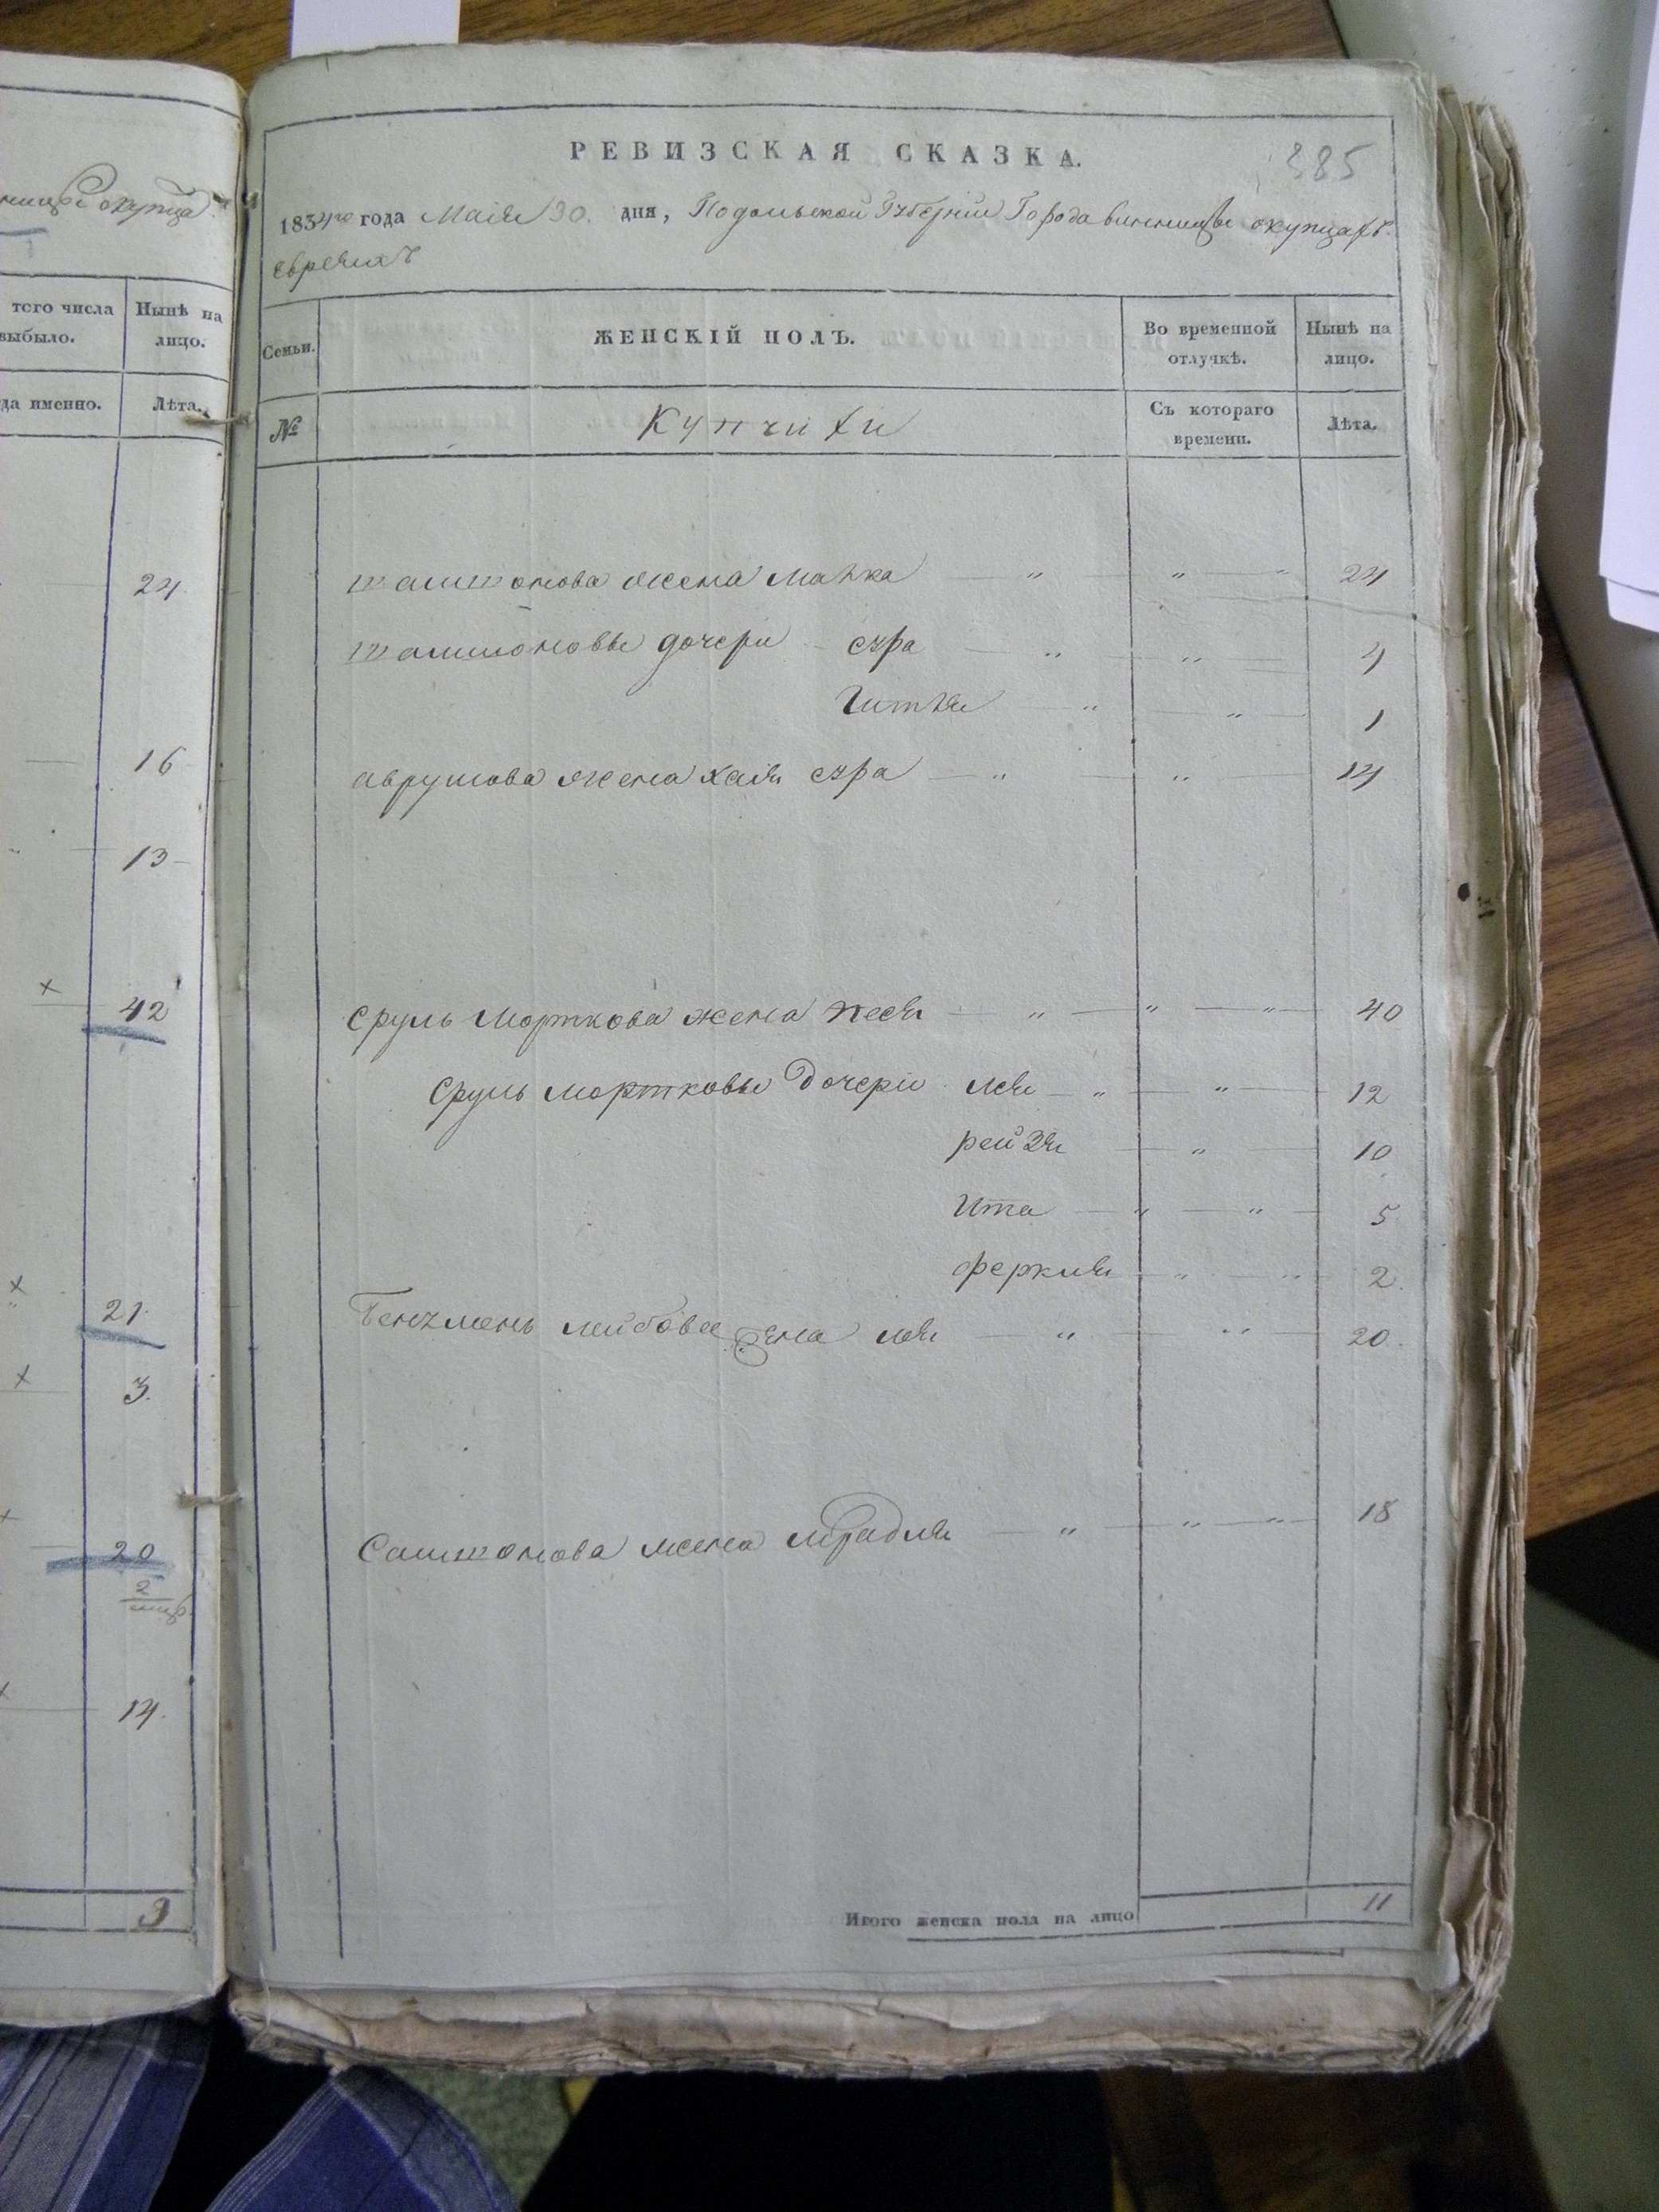 ницы окупца
того числа
выбыло.
Нынѣ на
лицо.
да именно.
Лѣта.
24
16
13
42
21
3
20
14
9
385
РЕВИЗСКАЯ СКАЗКА.
1834го года Маія 30. дня, Подольской Губерніи Города винницы окупцахъ
евреяхъ
Семьи.
ЖЕНСКІЙ ПОЛЪ.
Во временной
отлучкѣ.
Нынѣ на
лицо.
№
Купчихи
Съ котораго
времени.
Лѣта.
жена Малка " " " 24
дочери сура " " 4
Читля " " 1
аврумова жена хая сура " " 14
Сруль Морткова жена песя " " " 40
Сруль мортковы дочери лея " " 12
рейзя " 10
Ита " " 5
феркля " " 2
лейбова жена лея " " 20
жена " " " 18
Итого женска пола на лицо 11